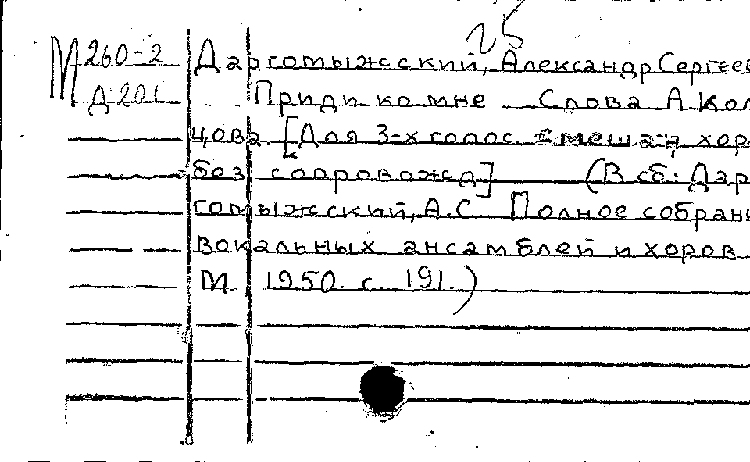 25
М260-2 Даргомыжский, Александр Сергеев
Д201 Приди ко мне Слова А Кол
цова [Для 3-х голос. смешан хор
без сопровожд] (В сб: Дар
гомыжский, А.С. Полное собрани
вокальных ансамблей и хоров
М 1950. с. 191.)